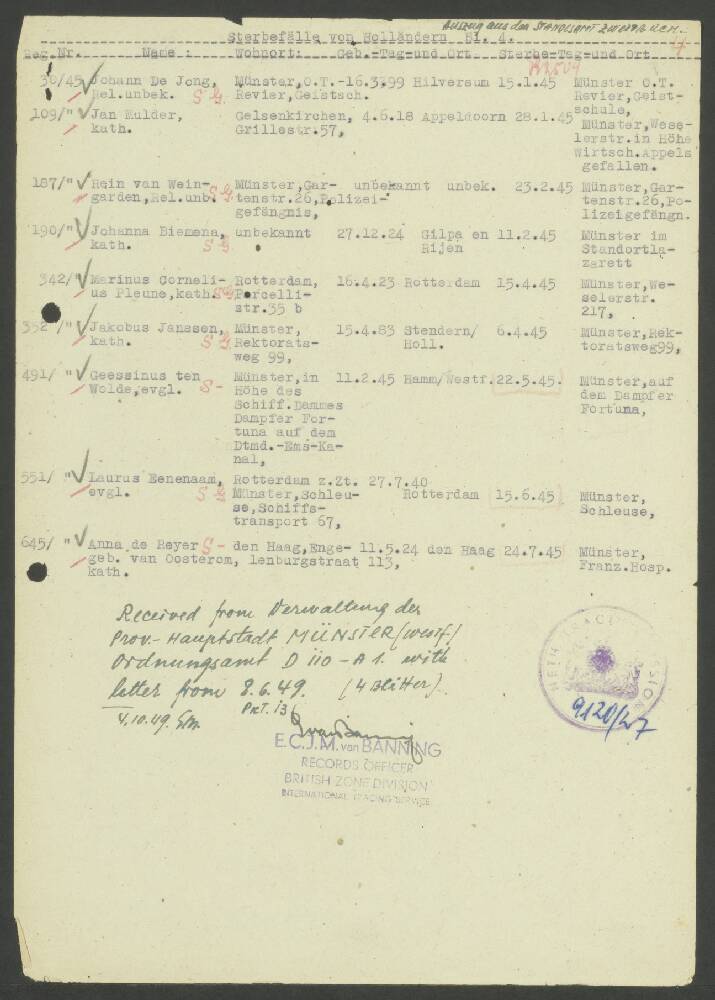 Auszug aus den STANDESAMT
Sterbefälle von Holländern Bl. 4.
Reg.Nr. Name : Wohnort: Geb.-Tag-und Ort Sterbe-Tag-und Ort
38/45 Johann De Jong, Münster,O.T.-16.3.99 Hilversum 15.1.45 Münster O.T.
Rel.unbek. S G Revier,Geistsch. Revier,Geist-
schule,
109/" Jan Mulder, Gelsenkirchen, 4.6.18 Appeldoorn 28.1.45 Münster,Wese-
kath. Grillostr.57, lerstr.in Höhe
Wirtsch.Appels
gefallen.
187/" Rein van Wein- Münster,Gar- unbekannt unbek. 23.2.45 Münster,Gar-
garden,Rel.unb. S G tenstr.26,Polizei- tenstr.26,Po-
gefängnis, lizeigefängn.
190/" Johanna Biemens, unbekannt 27.12.24 Gilpa en 11.2.45 Münster im
kath. S G Rijen Standortla-
zarett
342/" Marinus Corneli- Rotterdam, 16.4.23 Rotterdam 15.4.45 Münster,We-
us Pleune,kath. S G Porcelli- selerstr.
str.35 b 217,
352/" Jakobus Janssen, Münster, 15.4.83 Stendern/ 6.4.45 Münster,Rek-
kath. S G Rektorats- Holl. toratsweg99,
weg 99,
491/ " Geessinus ten Münster,in 11.2.45 Hamm/Westf. 22.5.45. Münster,auf
Wolde,evgl. S - Höhe des dem Dampfer
Schiff.Dammes Fortuna,
Dampfer For-
tuna auf dem
Dtmd.-Ems-Ka-
nal,
551/ " Laurus Eenenaam, Rotterdam z.Zt. 27.7.40
evgl. S G Münster,Schleu- Rotterdam 15.6.45 Münster,
se,Schiffs- Schleuse,
transport 67,
645/ " Anna de Reyer S - den Haag,Enge- 11.5.24 den Haag 24.7.45 Münster,
geb. van Oosterom, lenburgstraat 113, Franz.Hosp.
kath.
Received from Verwaltung der
Prov.-Hauptstadt MÜNSTER (Westf.)
Ordnungsamt D 110 - A 1. with
letter from 8.6.49. (4 Blätter).
4.10.49.
E.C.J.M. van BANNING
RECORDS OFFICER
BRITISH ZONE DIVISION
INTERNATIONAL TRACING SERVICE
9120/47